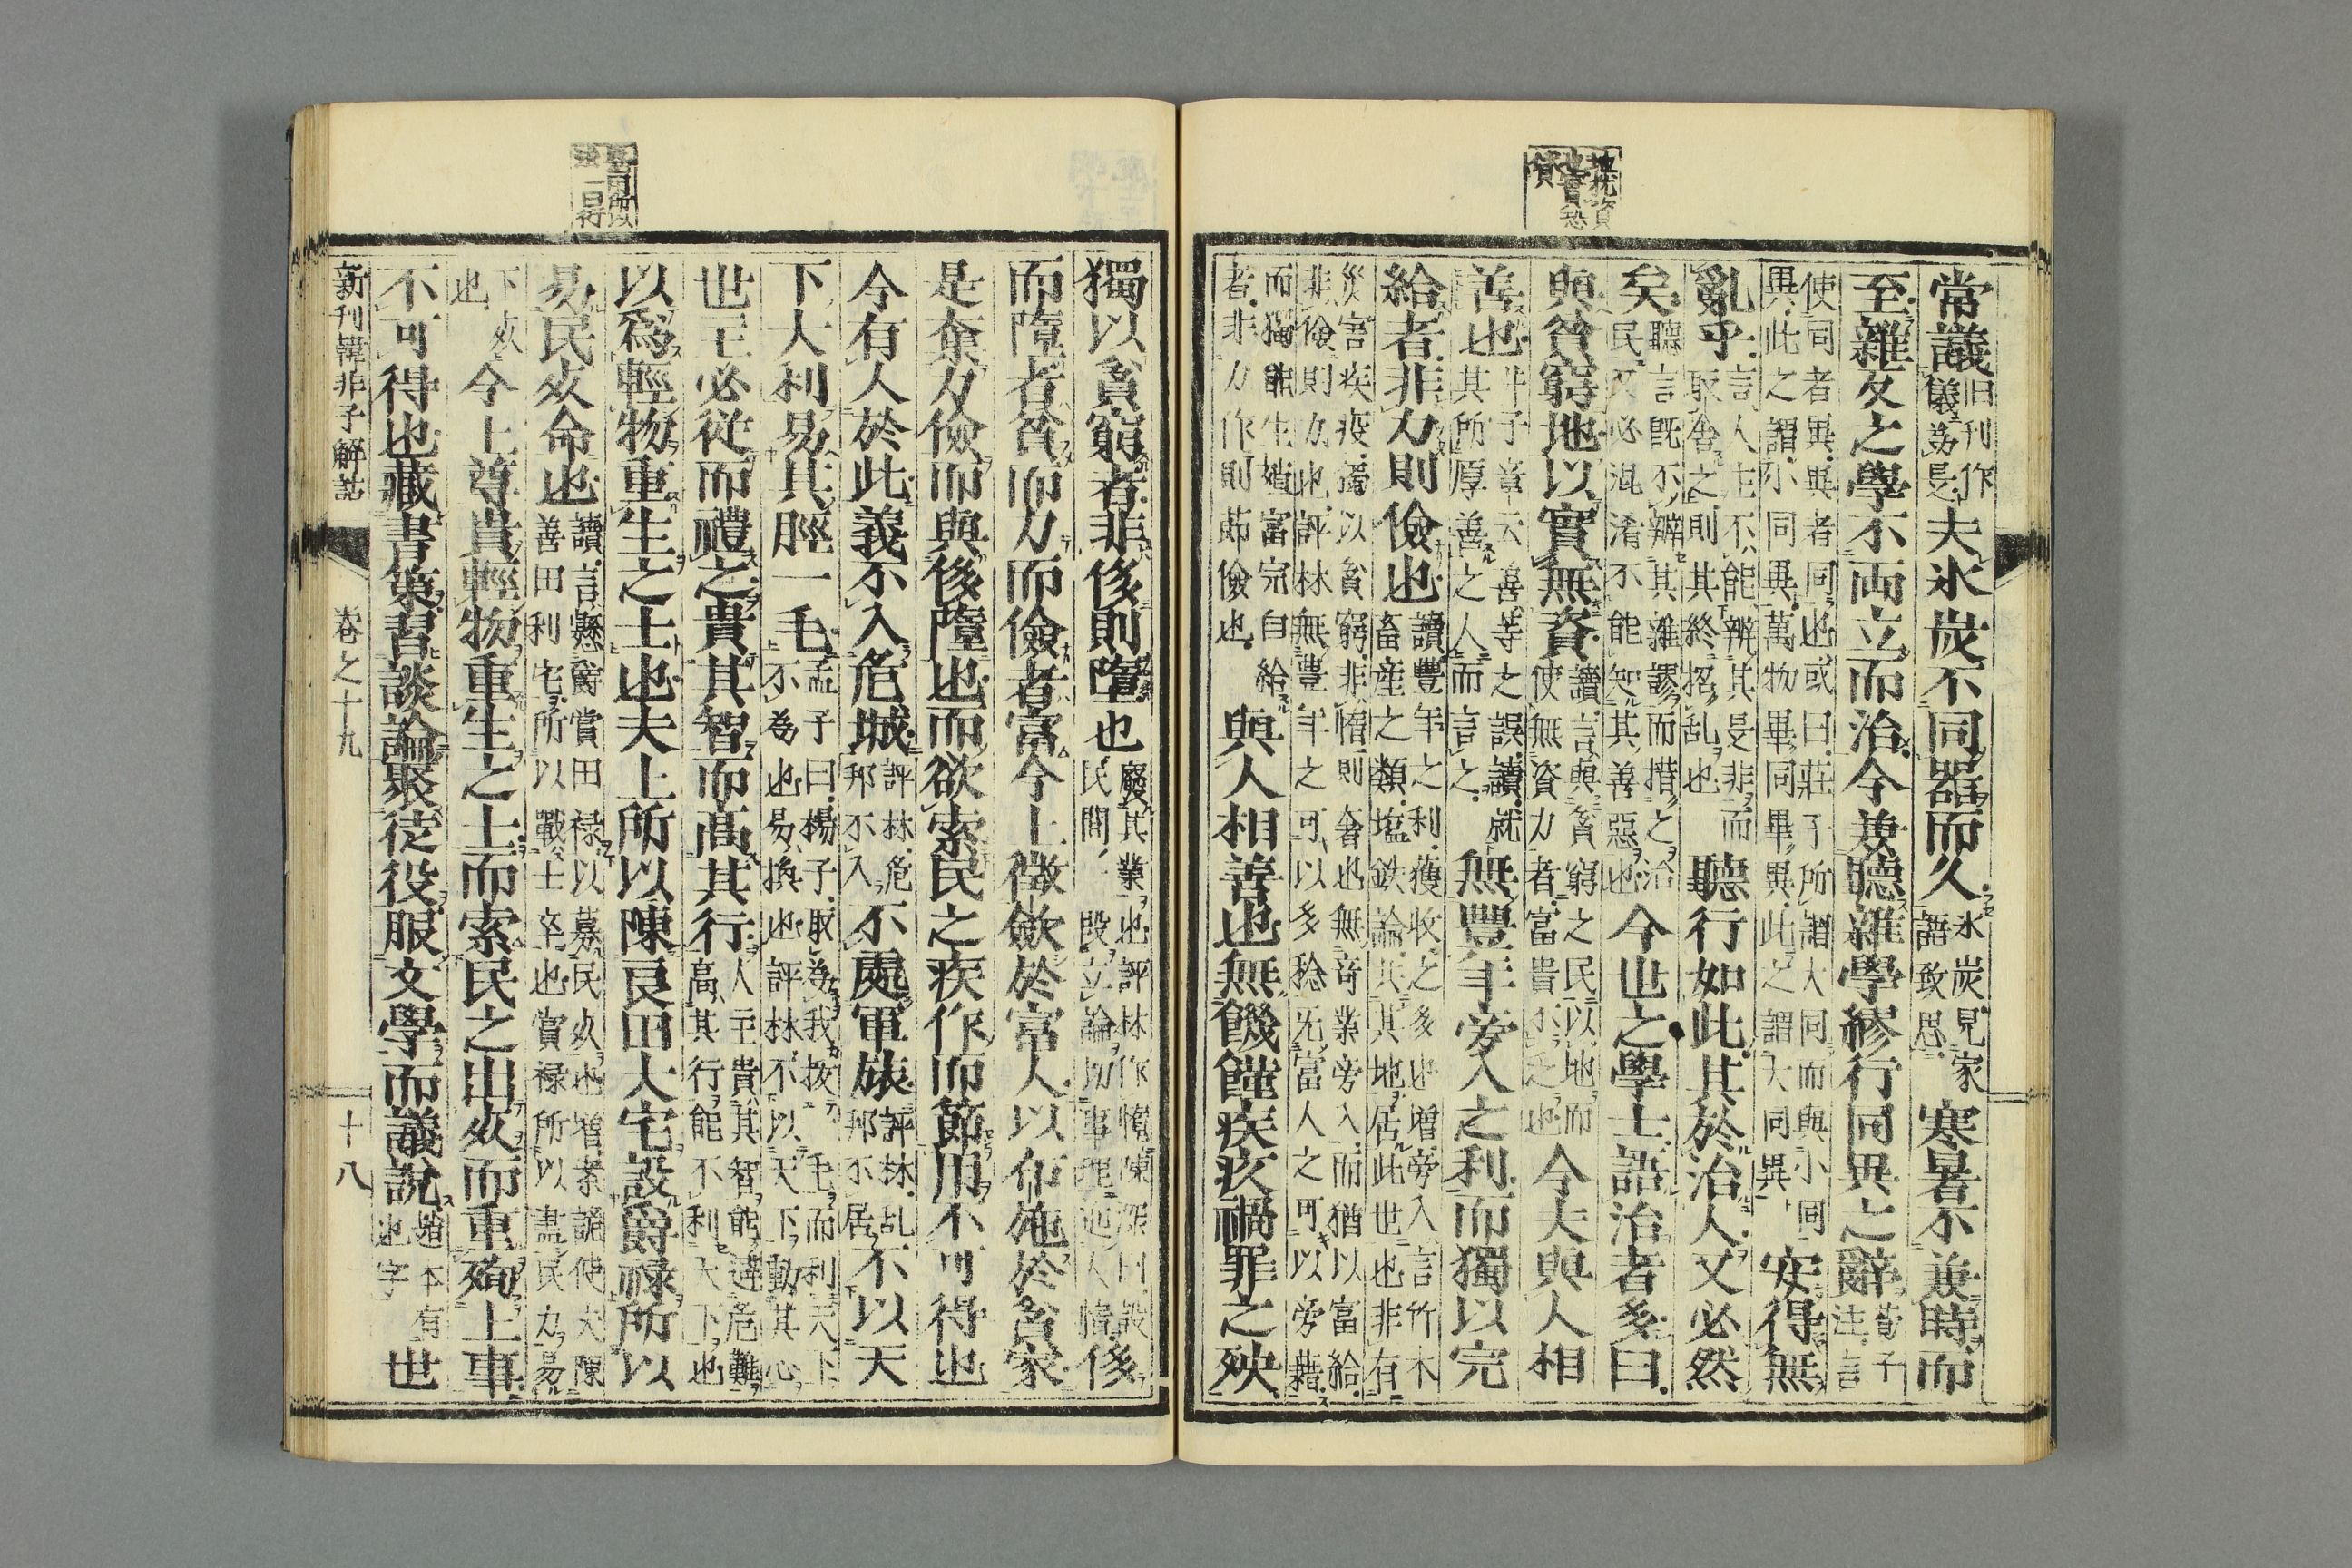 常議旧刊作儀為是夫氷炭不同器而久氷炭見家語致思寒暑不兼時而
至雜反之學不両立而治今兼聽雜學繆行同異之辭荀子注言
使同者異異者同也或曰莊子所謂大同而與小同
異此之謂小同異萬物畢同畢異此之謂大同異安得無
亂乎言人主不能辨其是非而取舍之則其終招乱也聽行如此其於治人又必然
矣聽言既不辨其雜謬而措之治民又必混淆不能知其善惡也今世之學士語治者多曰
與貧窮地以實無資讀言與貧窮之民以地而使無資力者富貴不乏也今夫與人相
善也廾子章云善等之誤讀就其所厚善之人而言之無豐年旁入之利而獨以完
給者非力則儉也讀豐年之利獲收之多也增旁入言竹木畜産之類塩鉄論共其地居此世也非有
災害疾疫獨以貧窮非惰則奢也無奇業旁入而猶以富給
非儉則力也評林無豐年之可以多稔无富人之可以旁藉
而獨能生殖富完自給
者非力作則節儉也與人相善也無饑饉疾疚禍罪之殃
獨以貧窮者非侈則墮也廢其業也評林作惰陳深曰設民間一段立論切事理近人情侈
而墮者貧而力而儉者富今上徴歛於富人以布施於貧家
是奪力儉而與侈墮也而欲索民之疾作而節用不可得也
今有人於此義不入危城評林危邦不入不處軍旅評林乱邦不居不以天
下大利易其脛一毛孟子曰楊子取為我拔一毛而利天下不為也易換也評林不以天下動其心
世主必從而禮之貴其智而高其行人主貴其智能遠危難高其行能不利天下也
以爲輕物重生之士也夫上所以陳良田大宅設爵祿所以
易民死命也讀言懸爵賞田禄以募民死也増業誦使大陳善田利宅所以戰士卒也賞禄所以盡民力易
下死也今上尊貴輕物重生之士而索民之出死而重殉上事
不可得也藏書策習談論聚徒役服文學而議說趙本有也字世
新刊韓非子解詁
卷之十九
十八